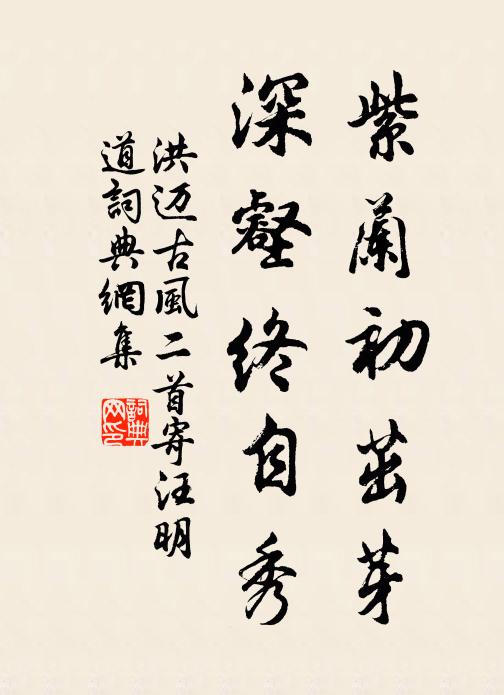 紫蘭初茁芽
深壑終自秀
洪迈古風二首寄汪明
道詞典網集
詞典
网印